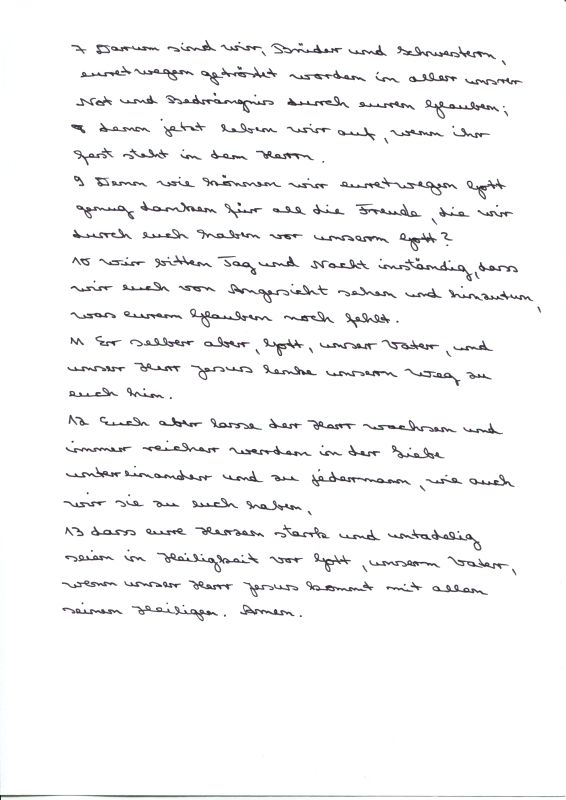 7 Darum sind wir, Brüder und Schwestern,
euretwegen getröstet worden in aller unsrer
Not und Bedrängnis durch euren Glauben;
8 denn jetzt leben wir auf, wenn ihr
fest steht in dem Herrn.
9 Denn wie können wir euretwegen Gott
genug danken für all die Freude, die wir
durch euch haben vor unserm Gott?
10 Wir bitten Tag und Nacht inständig, dass
wir euch von Angesicht sehen und hinzutun,
was eurem Glauben noch fehlt.
11 Er selbst aber, Gott, unser Vater, und
unser Herr Jesus lenke unsern Weg zu
euch hin.
12 Euch aber lasse der Herr wachsen und
immer reicher werden in der Liebe
untereinander und zu jedermann, wie auch
wir sie zu euch haben,
13 dass eure Herzen stark und untadelig
seien in Heiligkeit vor Gott, unserm Vater,
wenn unser Herr Jesus kommt mit allen
seinen Heiligen. Amen.